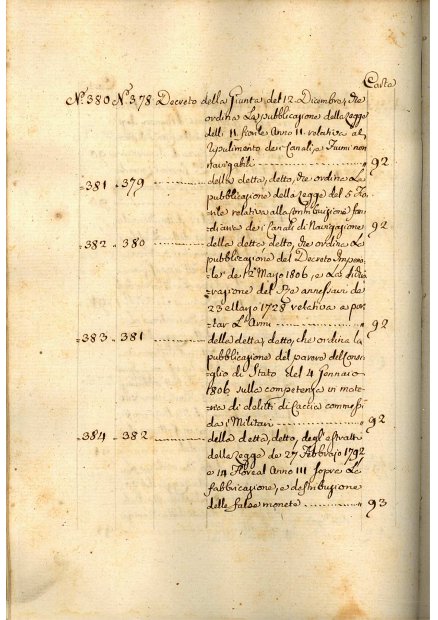 Carta
N.º 380 N.º 378 Decreto della Giunta del 12. Dicembre, che
ordina La pubblicazione della Legge
delli 11 fiorile Anno 11. relativa al
ripulimento dei Canali, e Fiumi non
navigabili ............ „ 92
„ 381 „ 379 ............ della detta, detto, che ordina La
pubblicazione della Legge del 5 Fio-
rile relativa alla Contribuzione fon-
diaria dei Canali di Navigazione „ 92
„ 382 „ 380 ............ della detta detto, che ordina La
pubblicazione del Decreto Imperia-
le de' 12 Mayo 1806, e La dichia-
razione del Re annessavi de'
23 Marzo 1728 relativa a por-
tar L'Armi ............ „ 92
„ 383 „ 381 ............ della detta, detto, che ordina la
pubblicazione del parere del Consi-
glio di Stato del 4 Gennaio
1806 sulla competenza in mate-
ria di delitti di Caccia commessi
da i Militari ............ „ 92
„ 384 „ 382 ............ della detta, detto, degl'estratti
delle Legge de' 27 Febbrajo 1792
e 14 Floreal Anno III sopra Le
fabbricazione, e distribuzione
delle false monete ............ „ 93